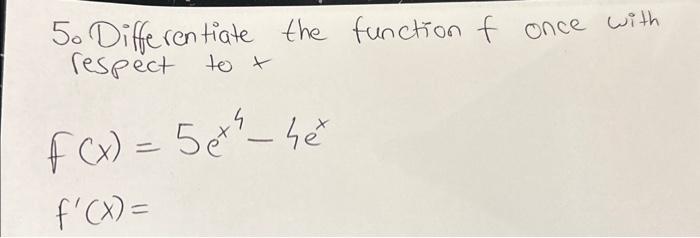 5. Differentiate the function f once with
respect to x
f(x) = 5e^{x^4} - 4e^x
f'(x) =